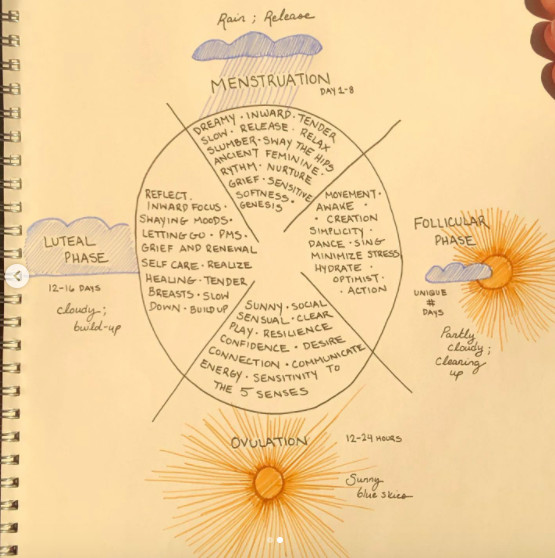 Rain ; Release
MENSTRUATION
DAY 1-8
DREAMY · INWARD · TENDER
SLOW · RELEASE · RELAX
SLUMBER · SWAY THE HIPS
ANCIENT FEMININE ·
RYTHM · NURTURE
GRIEF · SENSITIVE
SOFTNESS ·
GENESIS
MOVEMENT ·
AWAKE ·
· CREATION
SIMPLICITY ·
DANCE · SING
MINIMIZE STRESS
HYDRATE ·
OPTIMIST ·
· ACTION
FOLLICULAR
PHASE
UNIQUE
#
DAYS
Partly
cloudy ;
Clearing
up
SUNNY · SOCIAL
SENSUAL · CLEAR
PLAY · RESILIENCE
CONFIDENCE · DESIRE
CONNECTION · COMMUNICATE
ENERGY · SENSITIVITY TO
THE 5 SENSES
OVULATION
12-24 HOURS
Sunny
blue skies
REFLECT ·
INWARD FOCUS ·
SHAYING MOODS ·
LETTING GO · PMS ·
GRIEF AND RENEWAL
SELF CARE · REALIZE
HEALING · TENDER
BREASTS · SLOW
DOWN · BUILD UP
LUTEAL
PHASE
12-16 DAYS
cloudy ;
build-up